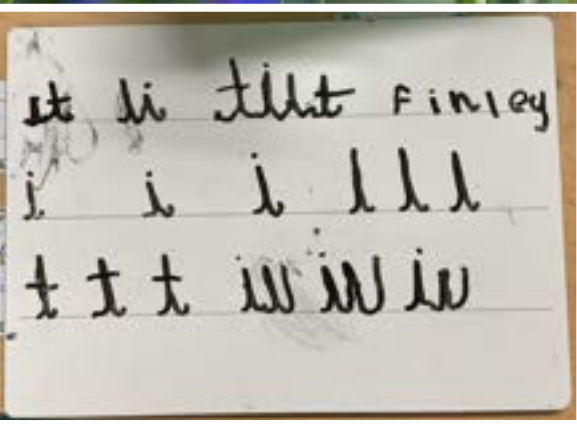 it li tilt Finley
i i i l l l
t t t iu iu iu